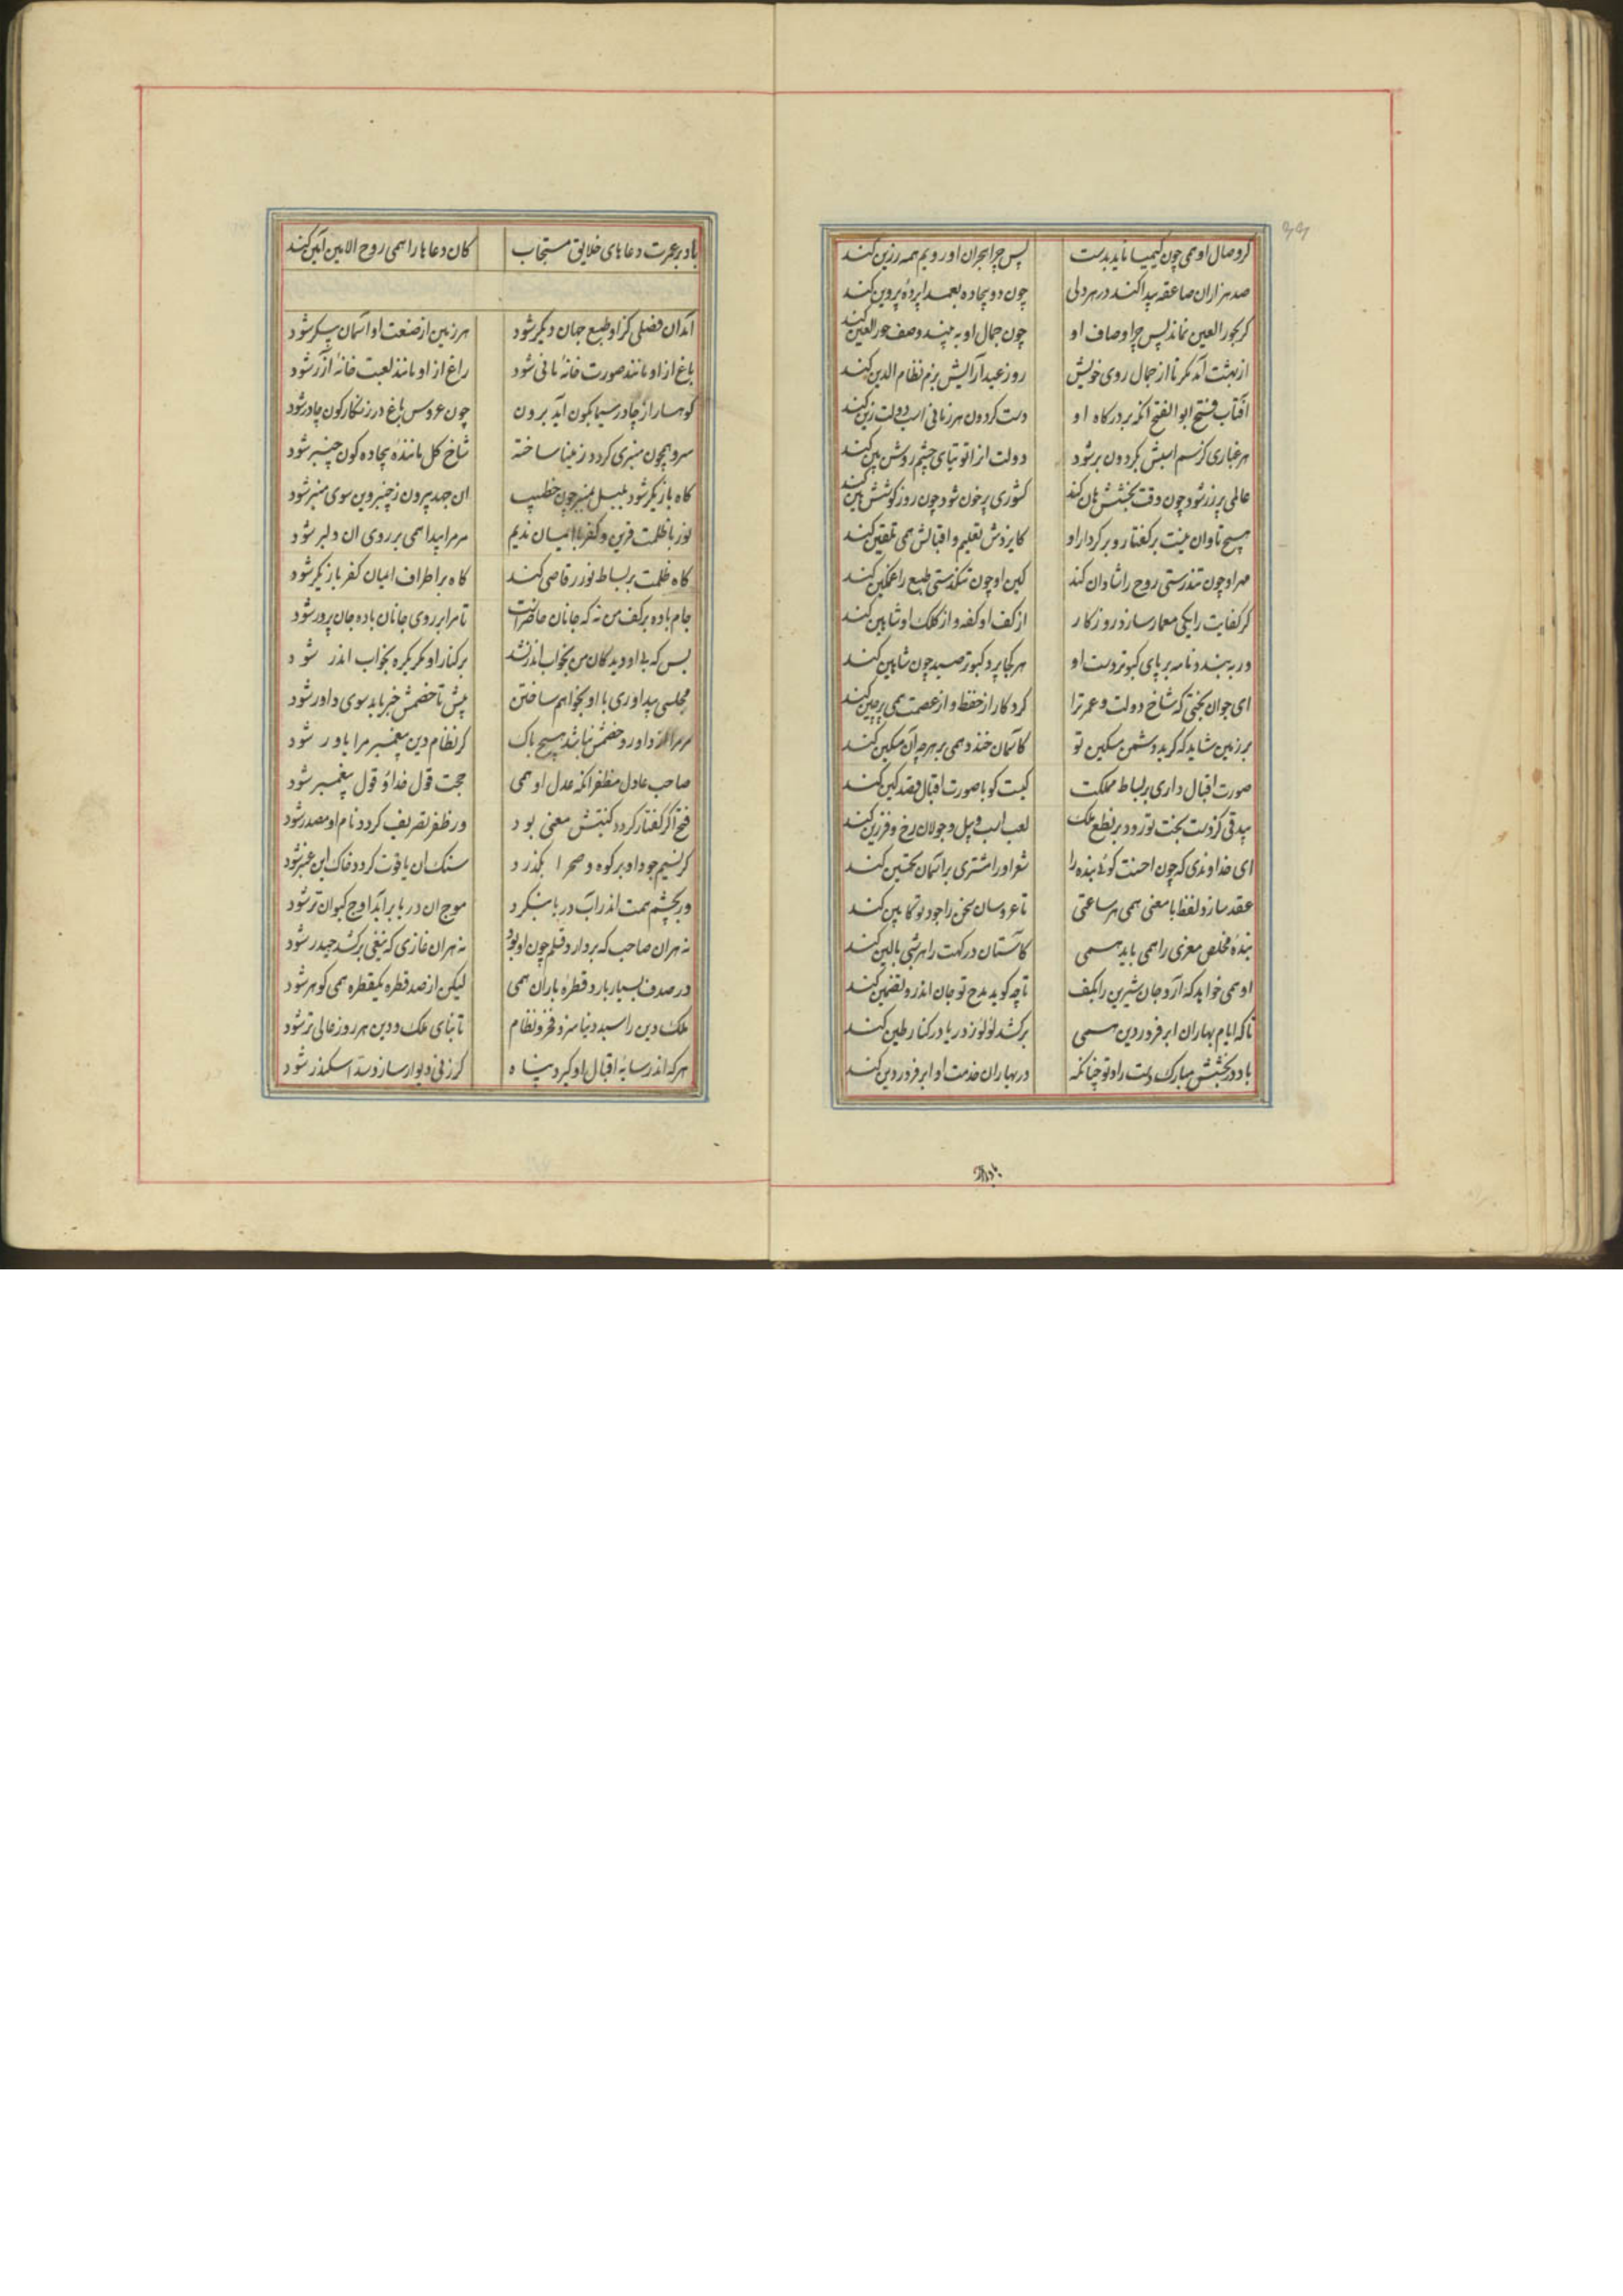 کر وصال او همی چون کیمیا ناید بدست پس چرا هجران او رویم همه زرین کند
صد هزاران صاعقه پیدا کند در هر دلی چون دو بیجاده بعمدا پردهٔ پروین کند
کر بحور العین نماند پس چرا وصاف او چون جمال او به بیند وصف حور العین کند
از بهشت آمد مکر تا از جمال روی خویش روز عید آرایش بزم نظام الدین کند
آفتاب فتح ابوالفتح آنکه بر درکاه او دست کردون هر زمانی اسب دولت زین کند
هر غباری کز سم اسبش بکردون بر شود دولت از آن توتیای چشم روشن بین کند
عالمی پر زر شود چون وقت بخشش هان کند کشوری پر خون شود چون روز کوشش هین کند
هیچ تاوان نیست بر کفتار و بر کردار او کایزدش تعلیم و اقبالش همی تلقین کند
مهر او چون تندرستی روح را شادان کند کین او چون تنکدستی طبع را غمکین کند
کر کفایت را یکی معمار سازد روزکار از کف او کفه و از کلک او شاهین کند
ور به بندد نامه بر پای کبوتر دست او هر کجا پرد کبوتر صید چون شاهین کند
ای جوان بختی که شاخ دولت و عمر ترا کردکار از حفظ و از عصمت همی پرچین کند
بر زمین شاید که کرید دشمن مسکین تو کآسمان خندد همی بر هرچه آن مسکین کند
صورت اقبال داری بر بساط مملکت کیست کو با صورت اقبال قصد کین کند
بیدقی کز دست بخت تو رود بر نطع ملک لعب اسب و پیل و جولان رخ و فرزین کند
ای خداوندی که چون احسنت کوئی بنده را شعر او را مشتری بر آسمان تحسین کند
عقد سازد لفظ با معنی همی هر ساعتی تا عروسان سخن را جود تو کابین کند
بندهٔ مخلص معزی را همی باید همی کآستان درکهت را هر شبی بالین کند
او همی خواهد که آرد جان شیرین را بکف تا چه کوید مدح تو جان اندرو تضمین کند
تا که ایام بهاران ابر فروردین همی بر کشد لؤلؤ ز دریا در کنار طین کند
باد در بخشش مبارک دست راد تو چنانکه در بهاران خدمت او ابر فروردین کند
باد بر عمرت دعاهای خلایق مستجاب کان دعاها را همی روح الامین آمین کند
آمد آن فصلی کز او طبع جهان دیکر شود هر زمین از صنعت او آسمان پیکر شود
باغ از او مانند صورت خانهٔ مانی شود راغ از او مانند لعبت خانهٔ آزر شود
کوهسار از چادر سیمابکون آید برون چون عروس باغ در زنکارکون چادر شود
سرو همچون منبری کردد ز مینا ساخته شاخ کل مانندهٔ بیجاده کون چنبر شود
کاه بازیکر شود بلبل بمنبر چون خطیب ان جهد بیرون ز چنبر وین سوی منبر شود
نور با ظلمت قرین و کفر با ایمان ندیم مر مرا پیدا همی بر روی ان دلبر شود
کاه ظلمت بر بساط نور رقاصی کند کاه بر اطراف ایمان کفر بازیکر شود
جام باده بر کف من نه که جانان حاضرست تا مرا بر روی جانان باده جان پرور شود
بس که بی او دیدکان من بخواب اندر نشد بر کنار او مکر یکره بخواب اندر شود
مجلسی پیداوری با او بخواهم ساختن پیش تا خصمش خبر یابد سوی داور شود
مر مرا از داور و خصمش نباشد هیچ باک کر نظام دین پیغمبر مرا یاور شود
صاحب عادل مظفر آنکه عدل او همی حجت قول خدا و قول پیغمبر شود
فتح اکر کفتار کردد کنیتش معنی بود ور ظفر تصریف کردد نام او مصدر شود
کر نسیم جود او بر کوه و صحرا بکذرد سنک ان یاقوت کردد خاک این عنبر شود
ور بچشم همت اندر آب دریا بنکرد موج ان دریا برآید اوج کیوان تر شود
نه هران صاحب که بردارد قلم چون او بود نه هران غازی که تیغی برکشد حیدر شود
در صدف بسیار بارد قطرهٔ باران همی لیکن از صد قطره یکقطره همی کوهر شود
ملک و دین را سید دنیا سزد فخر و نظام تا بنای ملک و دین هر روز عالی تر شود
هرکه اندر سایهٔ اقبال او کیرد پناه کر ز نی دیوار سازد سد اسکندر شود